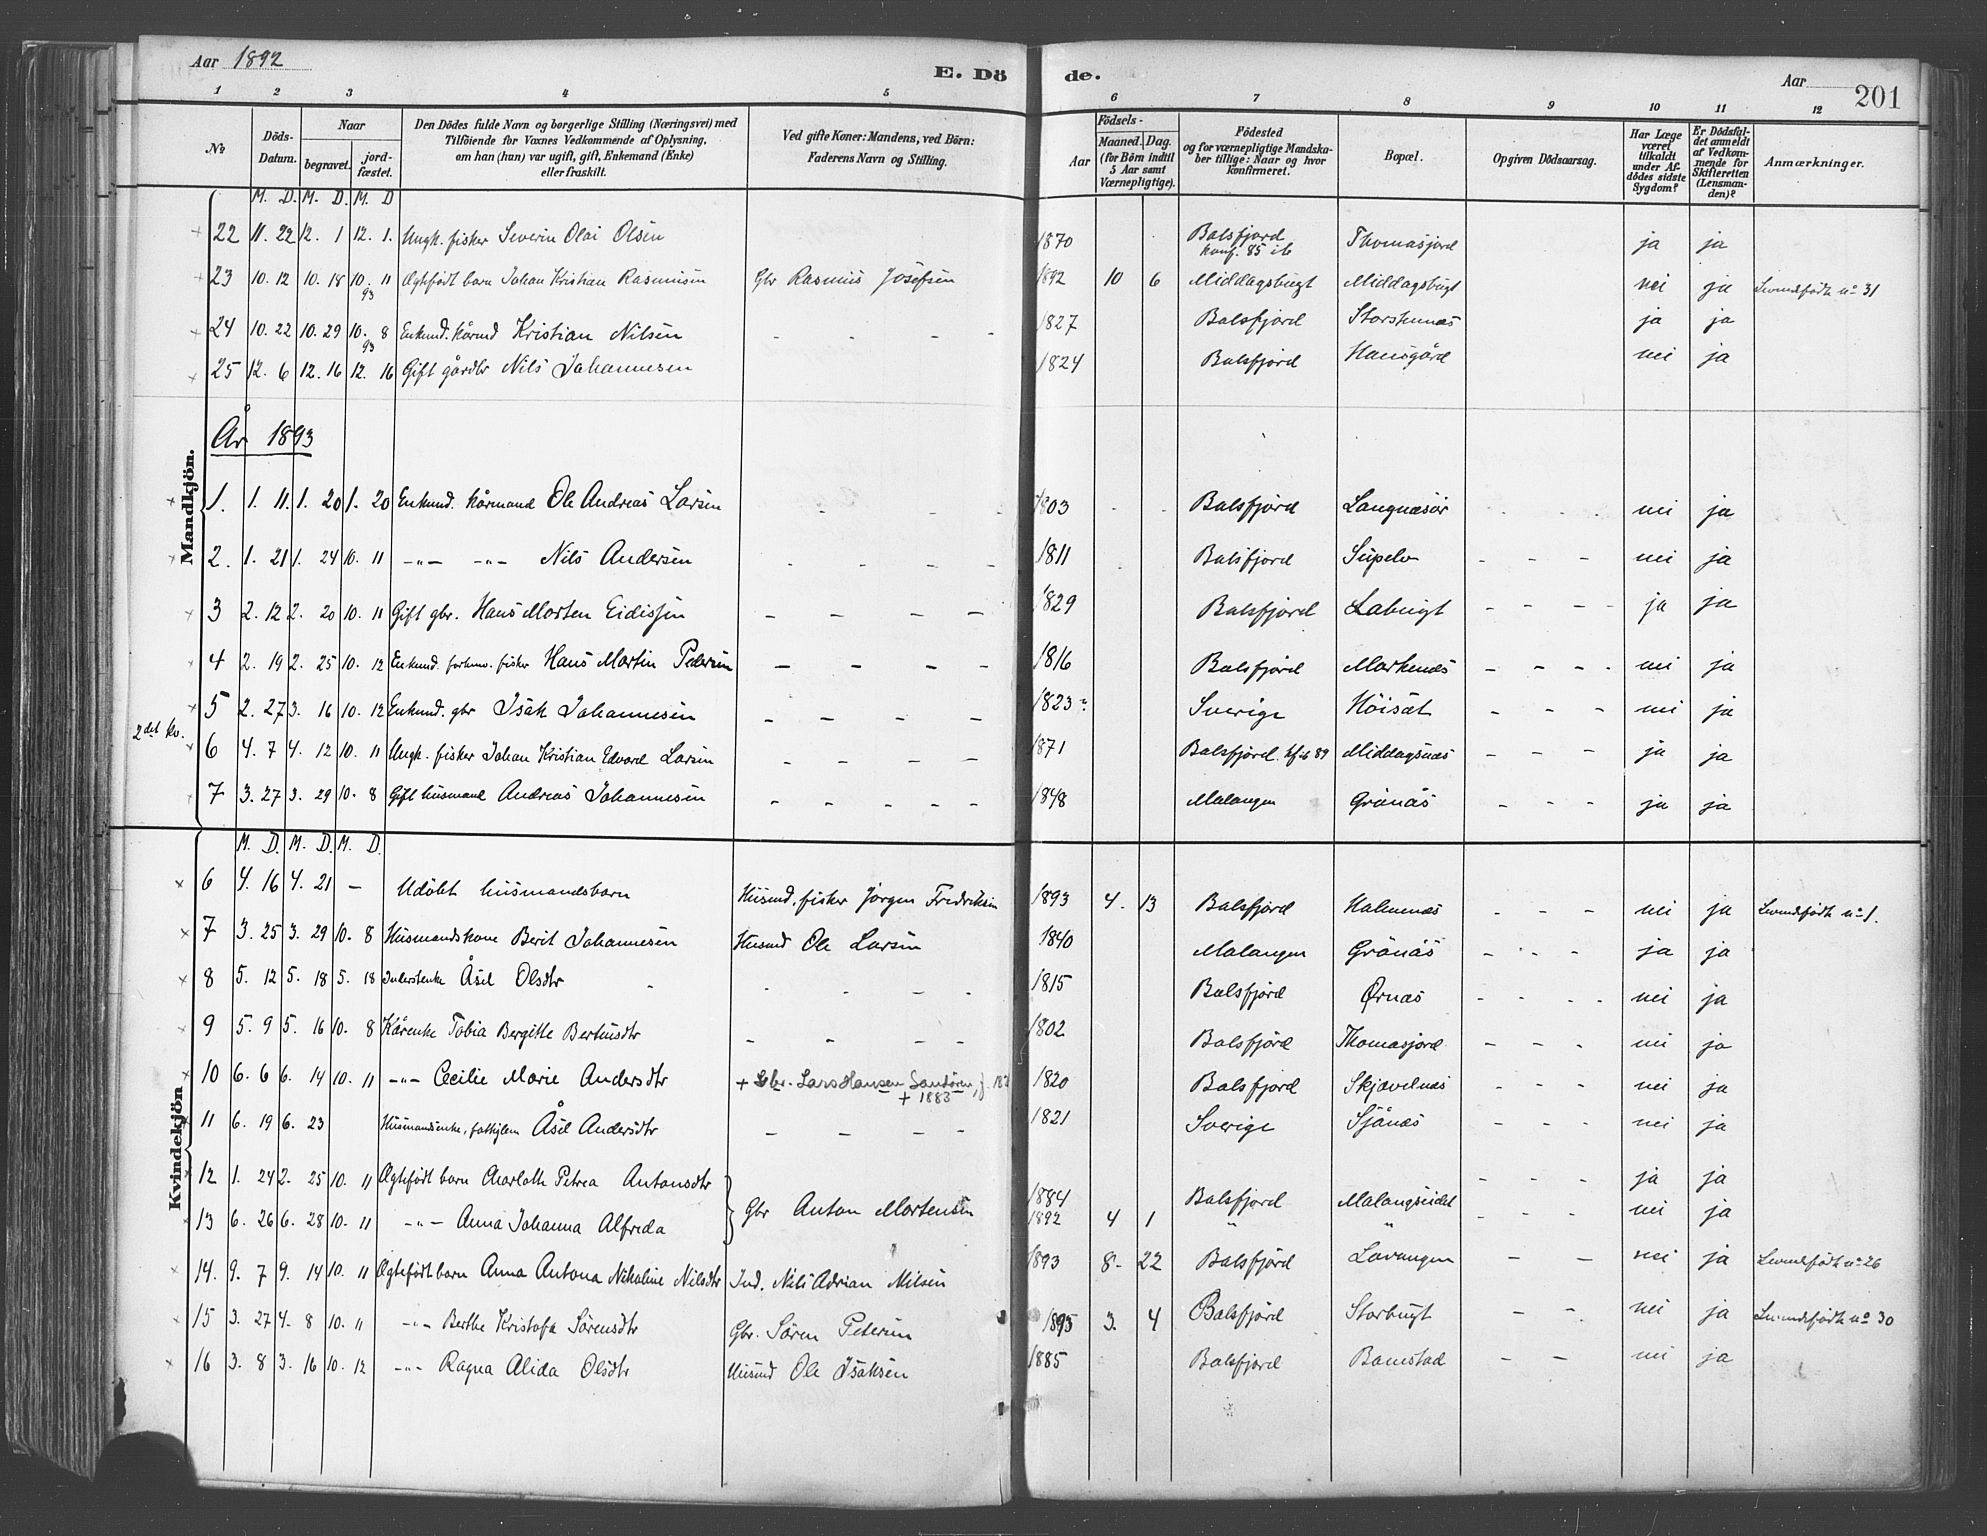 Aar 1892
E. Dö de.
Aar
201
1 2 3 4 5 6 7 8 9 10 11 12
No
Döds-Datum.
Naar
begravet.
jord-fæstet.
Den Dödes fulde Navn og borgerlige Stilling (Næringsvei) med
Tilföiende for Voxnes Vedkommende af Oplysning,
om han (hun) var ugift, gift, Enkemand (Enke)
eller fraskilt.
Ved gifte Koner: Mandens, ved Börn:
Faderens Navn og Stilling.
Födsels-
Aar
Maaned. Dag.
(for Börn indtil
5 Aar samt
Værnepligtige).
Födested
og for værnepligtige Mandska-
ber tillige: Naar og hvor
konfirmeret.
Bopæl.
Opgiven Dödsaarsag.
Har Læge
været
tilkaldt
under Af-
dödes sidste
Sygdom?
Er Dödsfal-
det anmeldt
af Vedkom-
mende for
Skifteretten
(Lensman-
den)?
Anmærkninger.
M. D. M. D. M. D
22 11. 22 12. 1 12. 1. Ungk. fisker Severin Olai Olsen 1870 Balsfjord konf. 85 ib Thomasjord ja ja
23 10. 12 10. 18 10. 11 93 Ægtefødt barn Johan Kristian Rasmusen Gbr Rasmus Josefsen 1892 10 6 Middagsbugt Middagsbugt nei ja Levendefødte no 31
24 10. 22 10. 29 10. 8 93 Enkemd. kårmd Kristian Nilsen - - - 1827 Balsfjord Storstennæs ja ja
25 12. 6 12. 16 12. 16 Gift gårdbr Nils Johannesen 1824 Balsfjord Hansgård nei ja
År 1893
Mandkjön.
1. 1. 11. 1. 20 1. 20 Enkemd. kårmand Ole Andreas Larsen - - - 1803 Balsfjord Langnæsör - - - nei ja
2. 1. 21 1. 24 10. 11 -"- -"- Nils Andersen - - - 1811 Balsfjord Süpelv - - - nei ja
3 2. 12 2. 20 10. 11 Gift gbr. Hans Morten Eidissen - - - - 1829 Balsfjord Labugt - - - - ja ja
4 2. 19 2. 25 10. 12 Enkemd. forhenv. fisker Hans Martin Pedersen - - - - 1816 Balsfjord Markenæs - - - - nei ja
5 2. 27 3. 16 10. 12 Enkemd. gbr Isak Johannesen - - - - 1823 Sverige Höisæt - - - nei ja
2det kv.
6 4. 7 4. 12 10. 11 Ungk. fisker Johan Kristian Edvard Larsen - - - - 1871 Balsfjord. kf. ib 89 Middagsnæs - - - ja ja
7 3. 27 3. 29 10. 8 Gift husmand Andreas Johannesen - - - - - 1848 Malangen Grönås - - - ja ja
M. D. M. D. M. D.
Kvindekjön
6 4. 16 4. 21 - Udöbt husmandsbarn Husmd. fisker Jörgen Fredriksen 1893 4. 13 Balsfjord Holmenæs - - - nei ja Levendefødte no 1.
7 3. 25 3. 29 10. 8 Husmandskone Berit Johannesen Husmd Ole Larsen 1840 Malangen Grönås - - - ja ja
8 5. 12 5. 18 5. 18 Inderstenke Åsel Olsdtr - - - - 1815 Balsfjord Ørnæs - - - - nei ja
9 5. 9 5. 16 10. 8 Kårenke Tobia Bergitte Bertensdtr - - - - 1802 Balsfjord Thomasjord - - - nei ja
10 6. 6 6. 14 10. 11 -"- Cecilie Marie Andersdtr + Gbr. Lars Hansen Sandören, f. + 1883 1820 Balsfjord Skjævelnæs - - - nei ja
11 6. 19 6. 23 Husmandsenke, fattiglem Åsel Andersdtr - - - - 1821 Sverige Sjånæs - - - nei ja
12 1. 24 2. 25 10. 11 Ægtefødt barn Charlotte Petrea Antonsdtr Gbr Anton Mortensen 1884 Balsfjord Malangseidet - - - ja ja
13 6. 26 6. 28 10. 11 -"- Anna Johanna Alfreda 1892 4 1 " " - - - nei ja
14. 9. 7 9. 14 10. 11 Ægtefødt barn Anna Antona Nikoline Nilsdtr Ind. Nils Adrian Nilsen 1893 8- 22 Balsfjord Lavangen - - nei ja Levendefødte no 26
15 3. 27 4. 8 10. 11 -"- Berthe Kristofa Sörensdtr Gbr. Sören Petersen 1893 3. 4 Balsfjord Storbugt - - nei ja Levendefødte no 30
16 3. 8 3. 16 10. 12 -"- Ragna Alida Olsdtr Husmd Ole Isaksen 1885 Balsfjord Bomstad - - nei ja